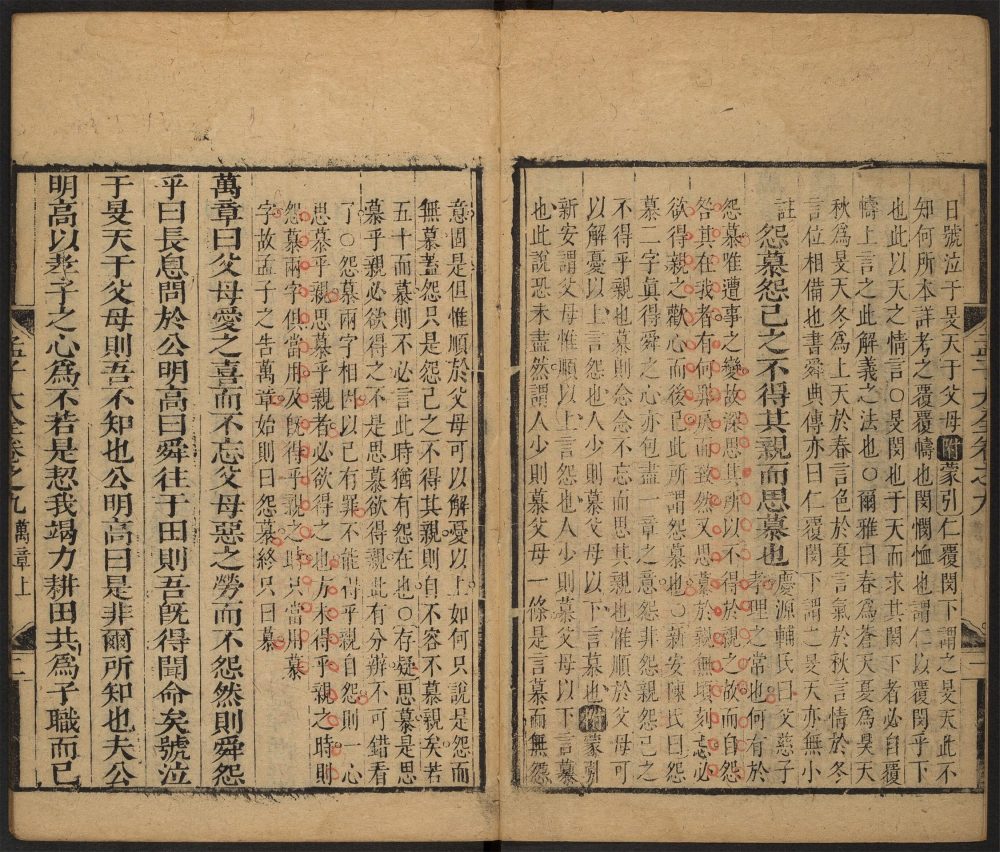 日號泣于旻天于父母附蒙引仁覆閔下謂之旻天此不
知何所本詳考之覆覆幬也閔憫恤也謂仁以覆閔乎下
也此以天之情言○旻閔也于天而求其閔下者必自覆
幬上言之此解義之法也○爾雅曰春為蒼天夏為昊天
秋為旻天冬為上天於春言色於夏言氣於秋言情於冬
言位相備也書舜典傳亦曰仁覆閔下謂之旻天亦無小
註
怨慕怨己之不得其親而思慕也慶源輔氏曰父慈子
孝理之常也何有於
怨慕唯遭事之變故深思其所以不得於親之故而自怨
咎其在我者有何罪戾而致然又思慕於親無頃刻忘必
欲得親之歡心而後已此所謂怨慕也○新安陳氏曰怨
慕二字真得舜之心亦包盡一章之意怨非怨親怨己之
不得乎親也慕則念念不忘而思其親也惟順於父母可
以解憂以上言怨也人少則慕父母以下言慕也附蒙引
新安謂父母惟順以上言怨也人少則慕父母以下言慕
也此說恐未盡然謂人少則慕父母一條是言慕而無怨
孟子大全卷之九
意固是但惟順於父母可以解憂以上如何只說是怨而
無慕蓋怨只是怨己之不得其親則自不容不慕親矣若
五十而慕則不必言此時猶有怨在也○存疑思慕是思
慕乎親必欲得之不是思慕欲得親此有分辨不可錯看
了○怨慕兩字相因以己有罪不能得乎親自怨則一心
思慕乎親思慕乎親者必欲得之也方未得乎親之時則
怨慕兩字俱當用及旣得乎親之時只當用慕
字故孟子之告萬章始則曰怨慕終只曰慕
萬章曰父母愛之喜而不忘父母惡之勞而不怨然則舜怨
乎曰長息問於公明高曰舜往于田則吾旣得聞命矣號泣
于旻天于父母則吾不知也公明高曰是非爾所知也夫公
明高以孝子之心為不若是恝我竭力耕田共為子職而已
孟子大全卷之九 萬章上 二